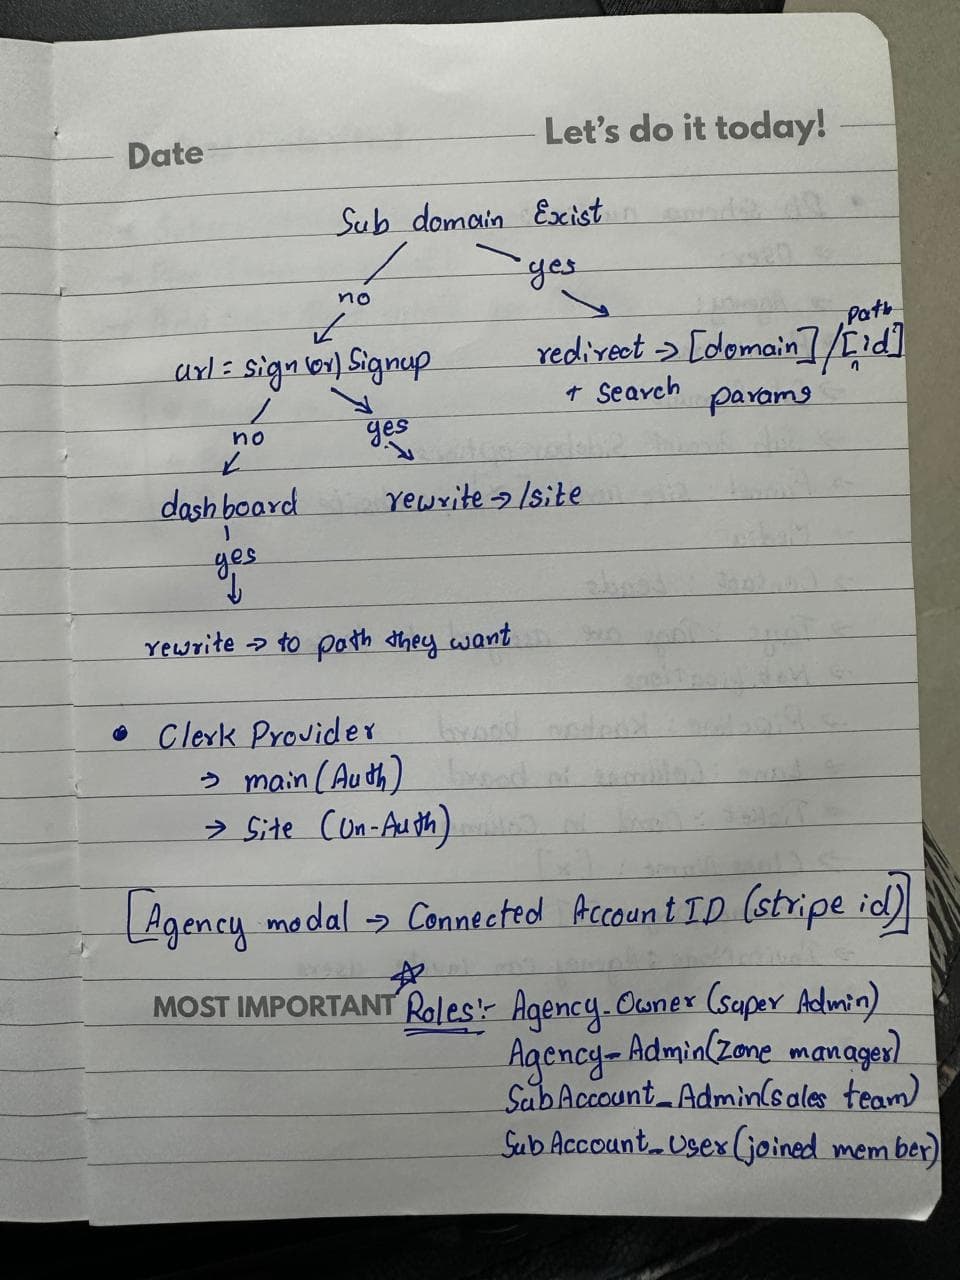 Date
Let's do it today!
Sub domain Exist
no
yes
url = sign (or) Signup
redirect → [domain] / [id]
path
+ search params
no
yes
dashboard
rewrite → /site
yes
rewrite → to path they want
• Clerk Provider
→ main (Auth)
→ Site (Un-Auth)
[Agency modal → Connected Account ID (stripe id)]
MOST IMPORTANT ☆ Roles:- Agency-Owner (super Admin)
Agency-Admin (zone manager)
SubAccount_Admin (sales team)
SubAccount_User (joined member)